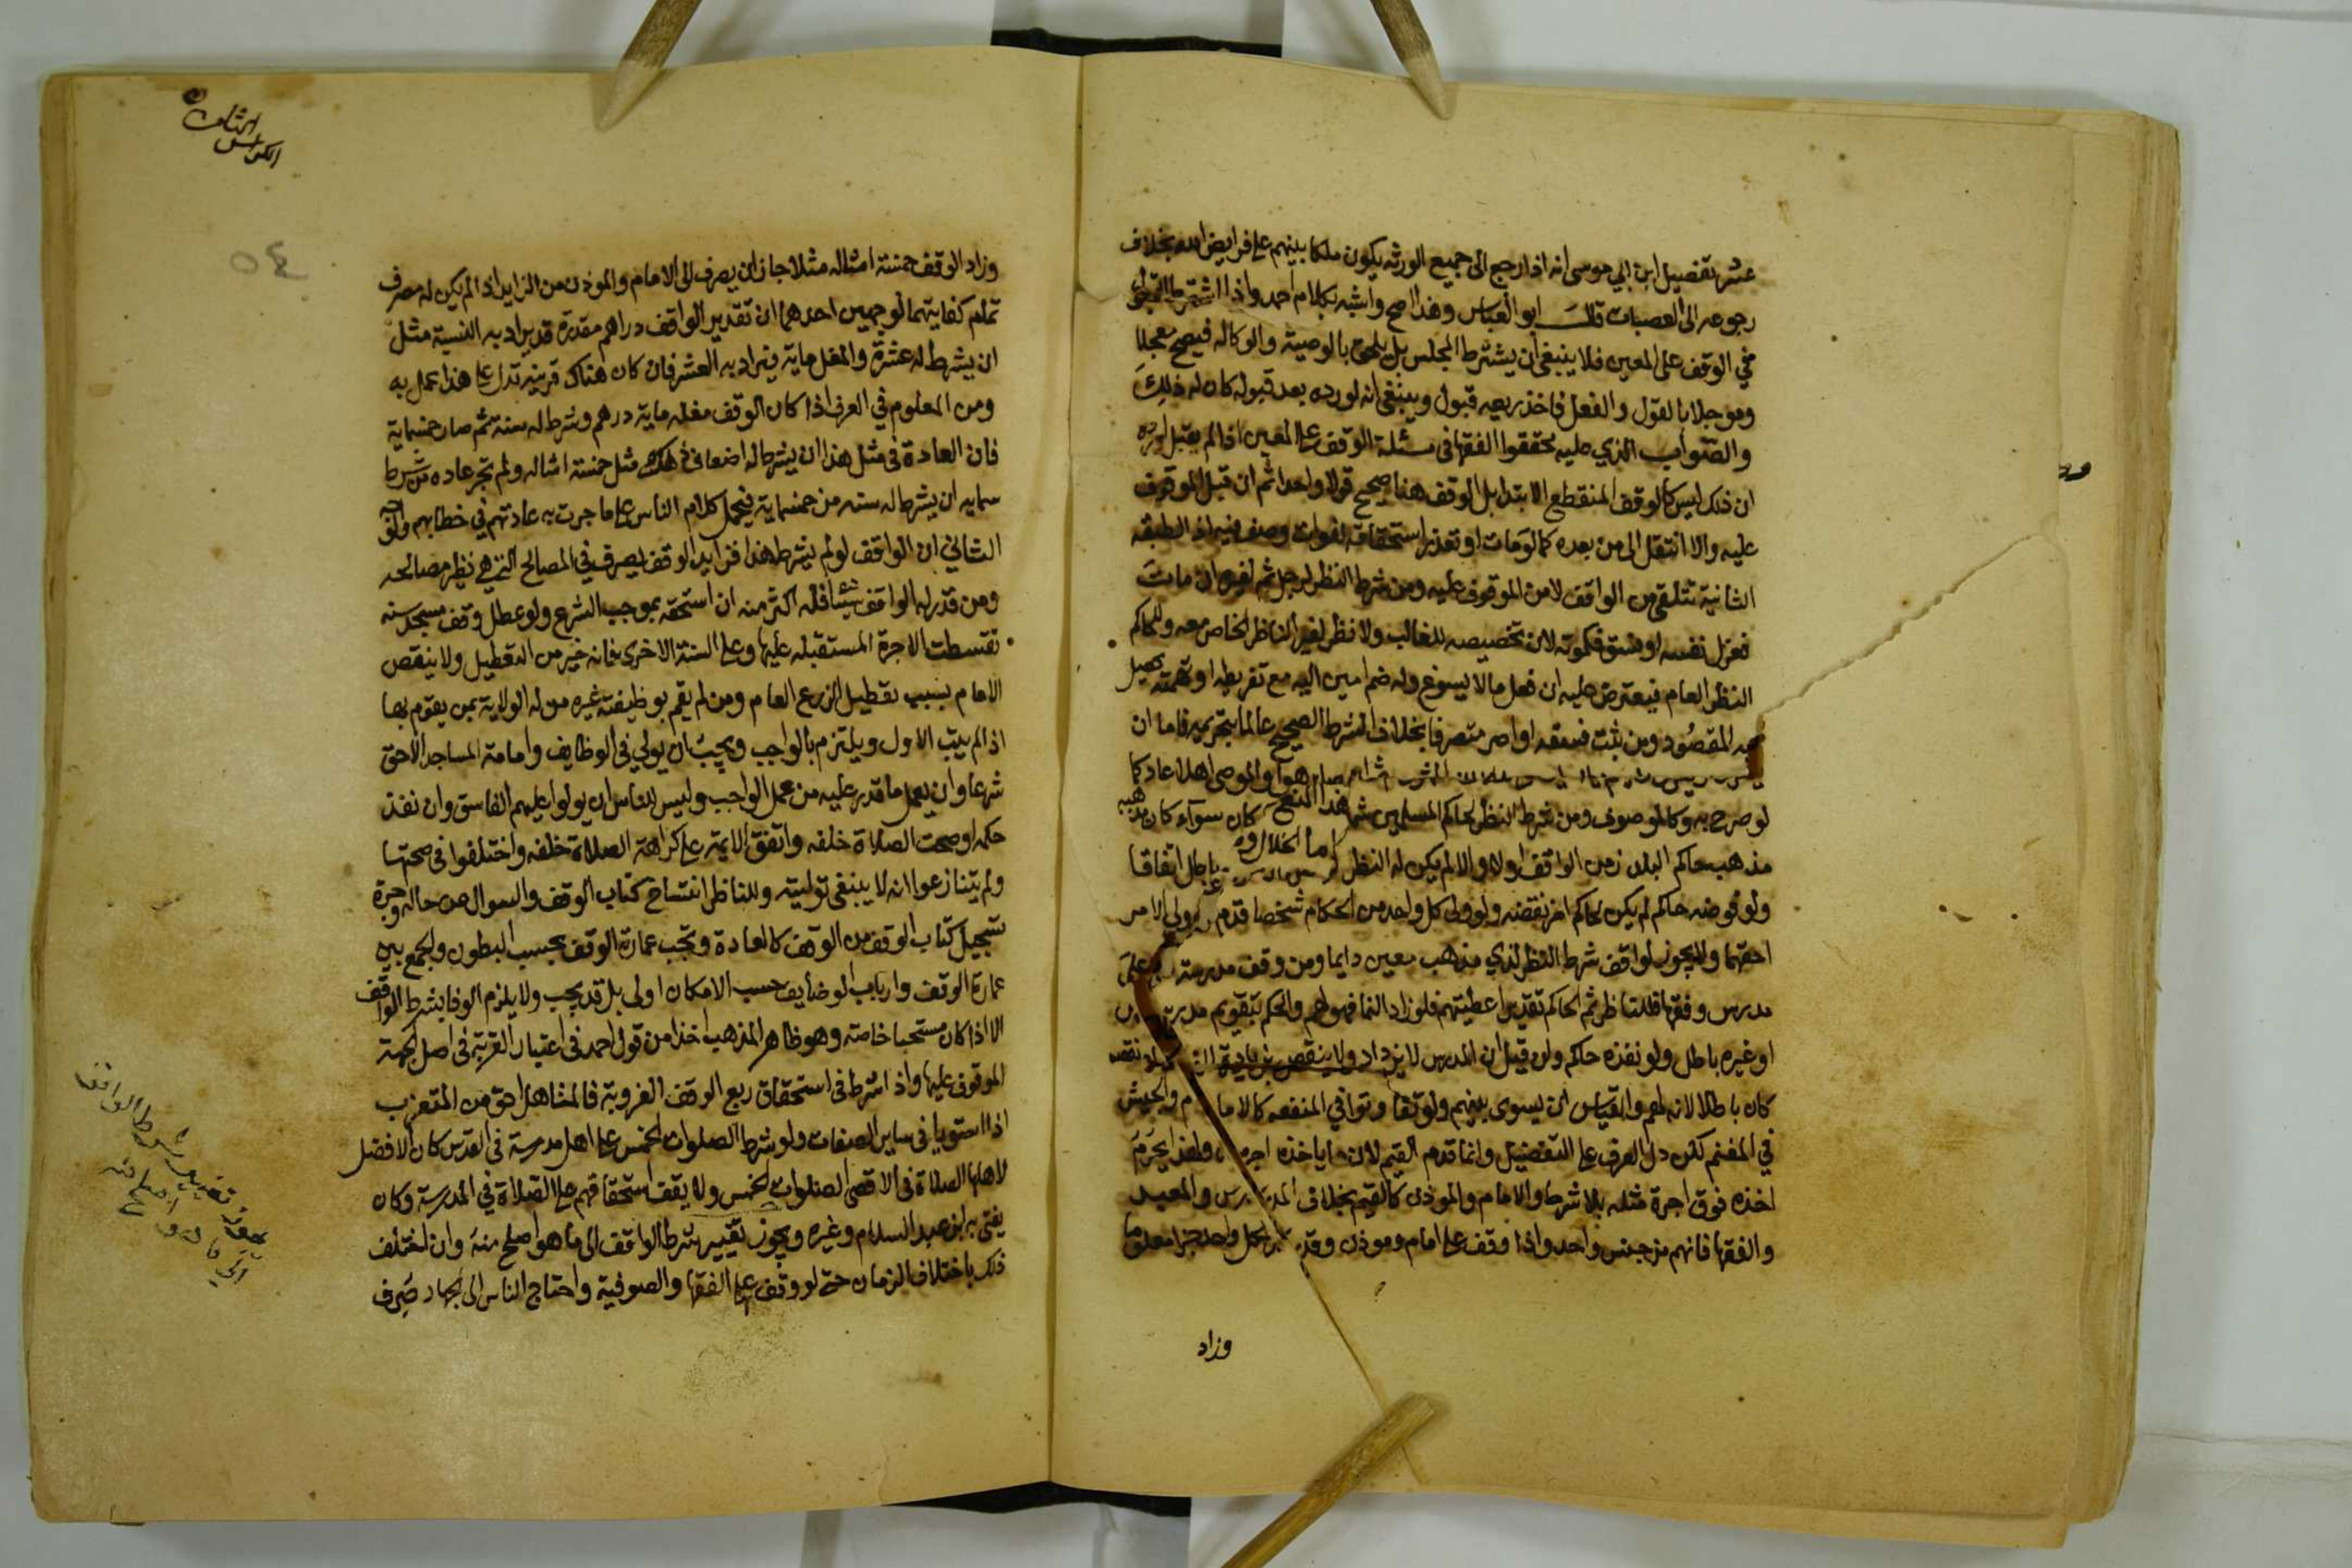 عشر تفضيل ابن ابي موسى انه اذا رجع الى جميع الورثه يكون ملكا بينهم على فرايض الله بخلاف
رجوعه الى العصبات قال ابو العباس وهذا اصح واشبه بكلام احمد واذا اشترط القبول
في الوقف على المعين فلا ينبغي ان يشترط المجلس بل يلحق بالوصية والوكاله فيصح معجلا
وموجلا بالقول والفعل فاخذ ريعه قبول وينبغي انه لورده بعد قبوله كان له ذلك
والصواب الذي عليه محققوا الفقها في مسئلة الوقف على المعين اذا لم يقبل اورده
ان ذلك ليس كالوقف المنقطع الابتدا بل الوقف هنا صحيح قولا واحدا ثم ان قبل الموقوف
عليه والا انتقل الى من بعده كما لو مات او تعذر استحقاقه لفوات وصف فيه اذ الطبقه
الثانية تتلقى من الواقف لا من الموقوف عليه ومن شرط النظر لرجل ثم لغيره ان مات
فعزل نفسه او فسق فكموته لان تخصيصه للغالب ولا نظر لغير الناظر الخاص معه وللحاكم
النظر العام فيعترض عليه ان فعل ما لا يسوغ وله ضم امين اليه مع تفريطه او تهمته يحصل
به المقصود ومن ثبت فسقه او اصر متصرفا بخلاف الشرط الصحيح عالما بتحريمه فاما ان
هو والموصى اهلا عاد كما
لو صرح به وكالموصوف ومن شرط النظر لحاكم المسلمين كان سوآء كان مذهبه
مذهب حاكم البلد زمن الواقف اولا والا لم يكن له النظر باطل اتفاقا
ولو فوضه حاكم لم يكن لحاكم اخر نقضه ولو ولى كل واحد من الحكام شخصا قدم ولي الامر
احقهما ولا يجوز لواقف شرط النظر لذي مذهب معين دايما ومن وقف مدرسة على
مدرس وفقها فللناظر ثم الحاكم تقدير اعطيتهم فلو زاد النما فهو لهم والحكم بتقويم مدرس
او غيره باطل ولو نفذه حاكم ولن قيل ان المدرس لا يزداد ولا ينقص بزيادة النما ونقصه
كان باطلا لانه لهم والقياس ان يسوى بينهم ولو تفاوتوا في المنفعه كالامام والجيش
في المغنم لكن دل العرف على التفضيل وانما قدم القيم لان ما ياخذه اجره ولهذا يحرم
اخذه فوق اجرة مثله بلا شرط والامام والموذن كالقيم بخلاف المدرس والمعيد
والفقها فانهم من جنس واحد واذا وقف على امام وموذن وقدر لكل واحد جزا معلوما
وزاد
الكراس الثامن
٥٤
وزاد الوقف خمسة امثاله مثلا جاز ان يصرف الى الامام والموذن من الزايد اذا لم يكن له مصرف
تمام كفايتهما لوجهين احدهما ان تقدير الواقف دراهم مقدرة قد يراد به النسبة مثل
ان يشرط له عشرة والمغل ماية فيراد به العشر فان كان هناك قرينه تدل على هذا عمل به
ومن المعلوم في العرف اذا كان الوقف مغله ماية درهم وشرط له ستة ثم صار خمسماية
فان العادة في مثل هذا ان يشرط له اضعاف ذلك مثل خمسة امثاله ولم تجر عاده من شرط
ستمايه ان يشرط له سته من خمسماية فيحمل كلام الناس على ما جرت به عادتهم في خطابهم
الثاني ان الواقف لو لم يشرط هذا فزايد الوقف يصرف في المصالح التي هي نظير مصالحه
ومن قدر له الواقف شيئا فله اكثر منه ان استحقه بموجب الشرع ولو عطل وقف مسجد سنه
تقسطت الاجرة المستقبله عليها وعلى السنة الاخرى فانه خير من التعطيل ولا ينقص
الامام بسبب تعطيل الزرع العام ومن لم يقم بوظيفته غيره من له الولاية بمن يقوم بها
اذا لم يتب الاول ويلتزم بالواجب ويجب ان يولي في الوظايف وامامة المساجد الاحق
شرعا وان يعمل ما قدر عليه من عمل الواجب وليس للناس ان يولوا عليهم الفاسق وان نفذ
حكمه او صحت الصلاة خلفه واتفق الايمة على كراهة الصلاة خلفه واختلفوا في صحتها
ولم يتنازعوا انه لا ينبغي توليته وللناظر انتساخ كتاب الوقف والسوال عن حاله واجرة
تسجيل كتاب الوقف من الوقف كالعادة وتجب عمارة الوقف بحسب البطون والجمع بين
عمارة الوقف وارباب الوضايف حسب الامكان اولى بل قد يجب ولا يلزم الوفا بشرط الواقف
الا اذا كان مستحبا خاصة وهو ظاهر المذهب اخذا من قول احمد في اعتبار القربة في اصل الجهة
الموقوف عليها واذا شرط في استحقاق ريع الوقف العزوبة فالمتاهل احق من المتعزب
اذا استويا في ساير الصفات ولو شرط الصلوات الخمس على اهل مدرسة في القدس كان الافضل
لاهلها الصلاة في الاقصى الصلوات الخمس ولا يقف استحقاقهم على الصلاة في المدرسة وكان
يفتي به ابن عبد السلام وغيره ويجوز تغيير شرط الواقف الى ما هو اصلح منه وان اختلف
ذلك باختلاف الزمان حتى لو وقف على الفقها والصوفية واحتاج الناس الى الجهاد صرف
يجوز تغيير شرط الواقف
الى ما هو اصلح منه